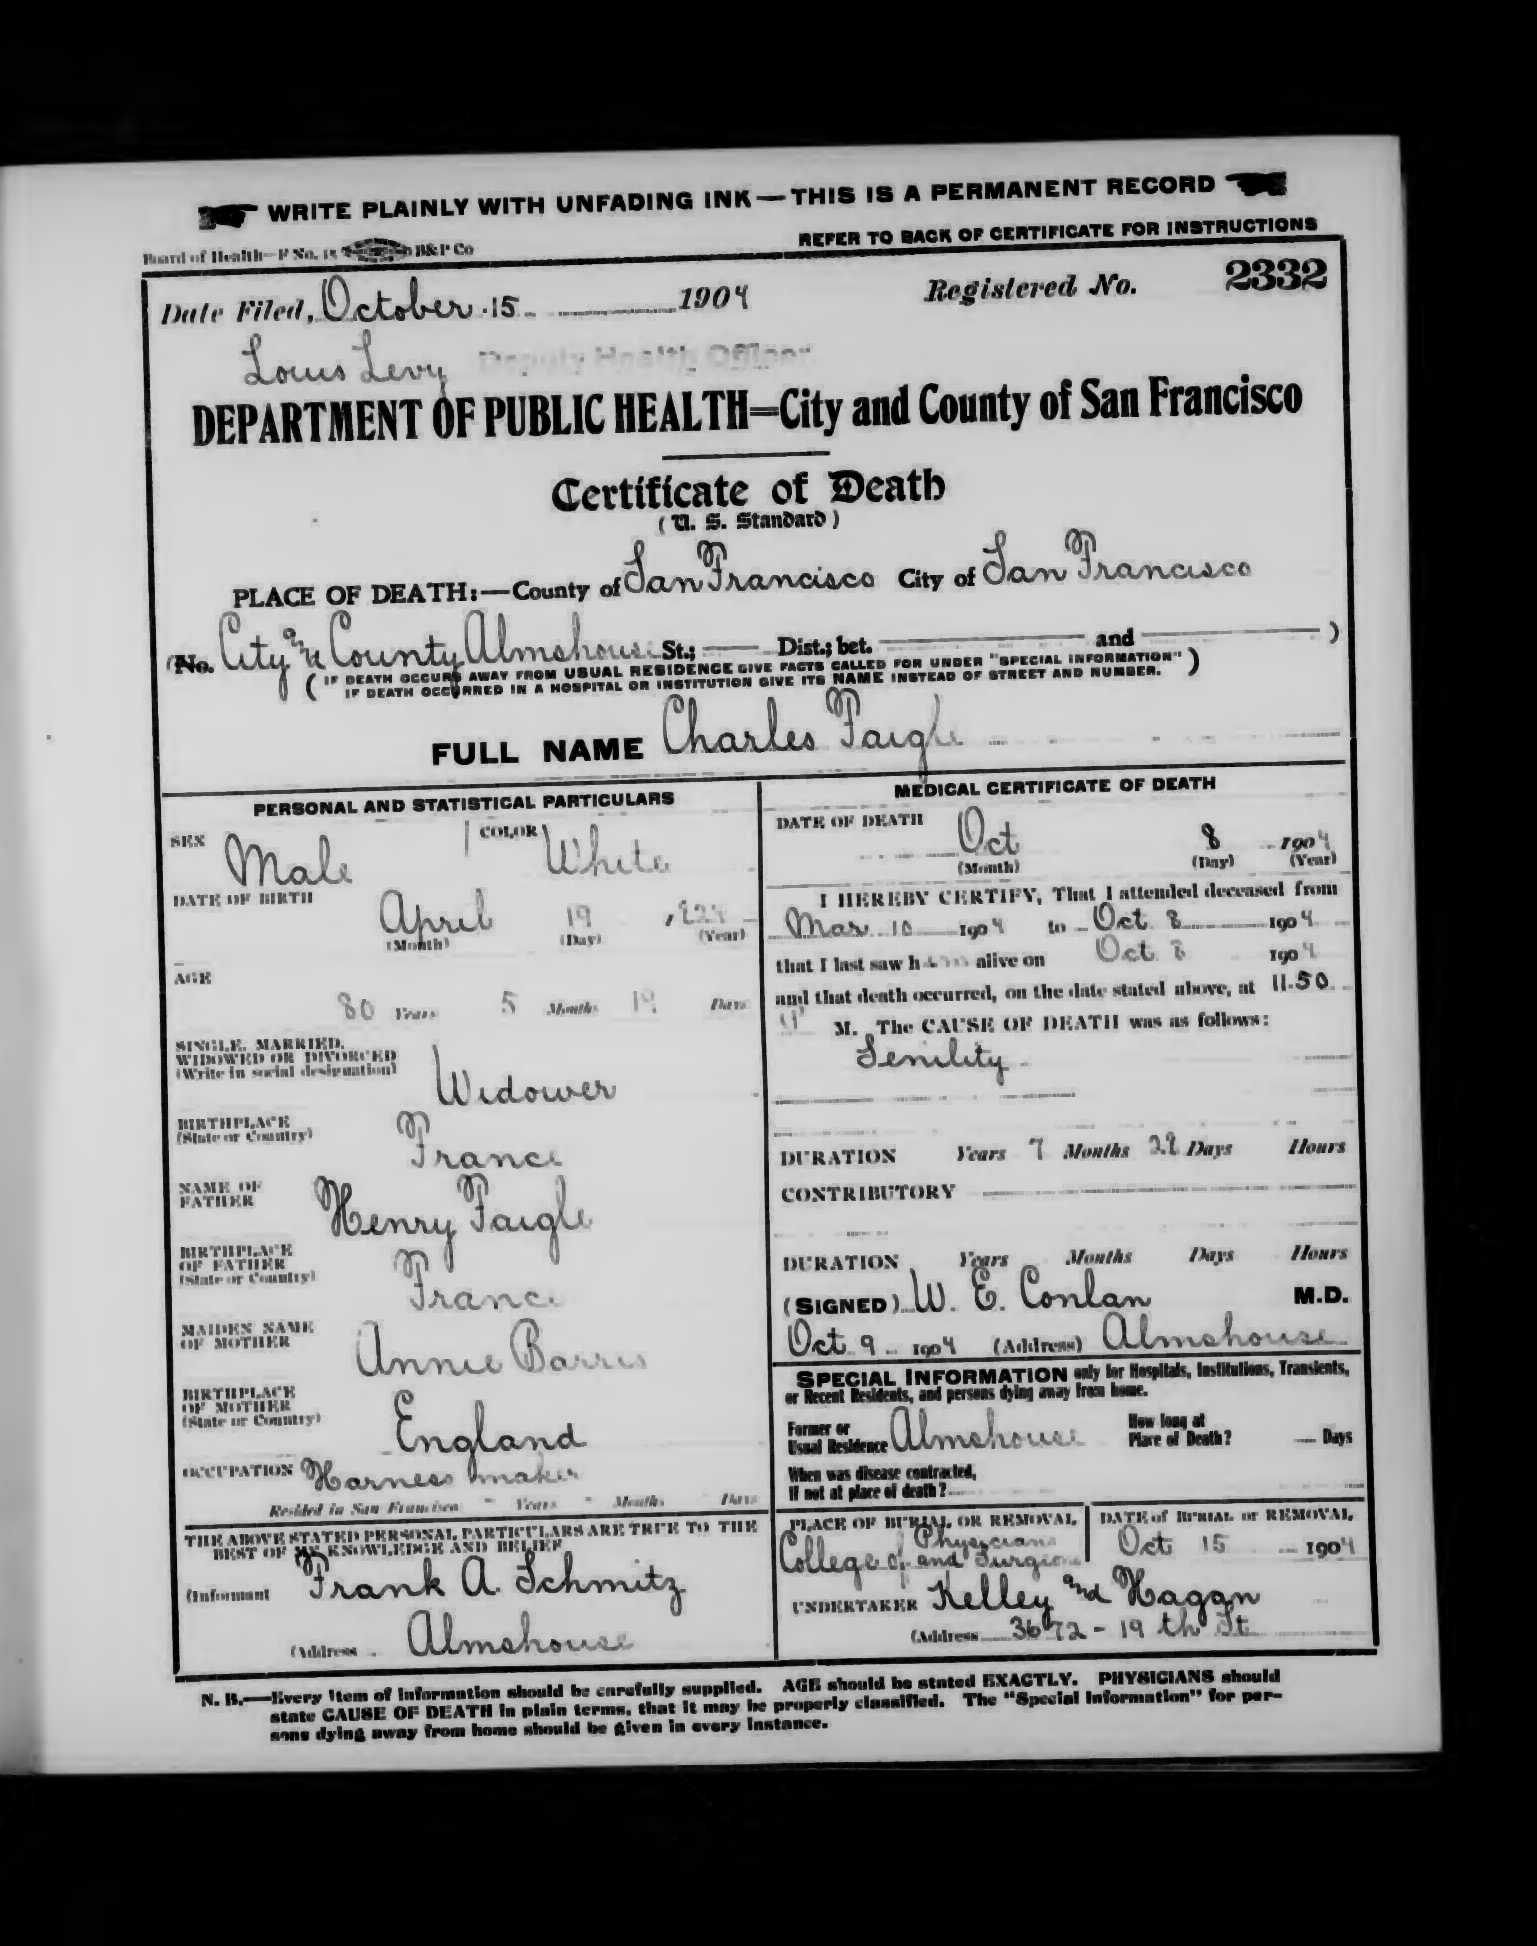 WRITE PLAINLY WITH UNFADING INK — THIS IS A PERMANENT RECORD
Board of Health—F No. 15 B&P Co
REFER TO BACK OF CERTIFICATE FOR INSTRUCTIONS
Date Filed, October 15 1904 Registered No. 2332
Louis Levy Deputy Health Officer
DEPARTMENT OF PUBLIC HEALTH=City and County of San Francisco
Certificate of Death
(U. S. Standard)
PLACE OF DEATH:—County of San Francisco City of San Francisco
(No. City and County Almshouse St.; Dist.; bet. and )
(IF DEATH OCCURS AWAY FROM USUAL RESIDENCE GIVE FACTS CALLED FOR UNDER "SPECIAL INFORMATION"
IF DEATH OCCURRED IN A HOSPITAL OR INSTITUTION GIVE ITS NAME INSTEAD OF STREET AND NUMBER.)
FULL NAME Charles Faigle
PERSONAL AND STATISTICAL PARTICULARS
SEX Male COLOR White
DATE OF BIRTH
April 19
(Month) (Day) (Year)
AGE
80 Years 5 Months 19 Days
SINGLE, MARRIED,
WIDOWED OR DIVORCED
(Write in social designation)
Widower
BIRTHPLACE
(State or Country)
France
NAME OF
FATHER
Henry Faigle
BIRTHPLACE
OF FATHER
(State or Country)
France
MAIDEN NAME
OF MOTHER
Annie Barris
BIRTHPLACE
OF MOTHER
(State or Country)
England
OCCUPATION Harness maker
Resided in San Francisco Years Months Days
THE ABOVE STATED PERSONAL PARTICULARS ARE TRUE TO THE
BEST OF MY KNOWLEDGE AND BELIEF
(Informant Frank A. Schmitz
(Address Almshouse
MEDICAL CERTIFICATE OF DEATH
DATE OF DEATH
Oct 8 1904
(Month) (Day) (Year)
I HEREBY CERTIFY, That I attended deceased from
Mar 10 1904 to Oct 8 1904
that I last saw him alive on Oct 8 1904
and that death occurred, on the date stated above, at 11.50
P M. The CAUSE OF DEATH was as follows:
Senility
DURATION Years 7 Months 28 Days Hours
CONTRIBUTORY
DURATION Years Months Days Hours
(SIGNED) W. E. Conlan M.D.
Oct 9 1904 (Address) Almshouse
SPECIAL INFORMATION only for Hospitals, Institutions, Transients,
or Recent Residents, and persons dying away from home.
Former or
Usual Residence Almshouse
How long at
Place of Death? Days
When was disease contracted,
If not at place of death?
PLACE OF BURIAL OR REMOVAL
College of Physicians and Surgeons
DATE of BURIAL or REMOVAL
Oct 15 1904
UNDERTAKER Kelley and Hagan
(Address 3672 - 19th St
N. B.—Every item of information should be carefully supplied. AGE should be stated EXACTLY. PHYSICIANS should
state CAUSE OF DEATH in plain terms, that it may be properly classified. The "Special Information" for per-
sons dying away from home should be given in every instance.